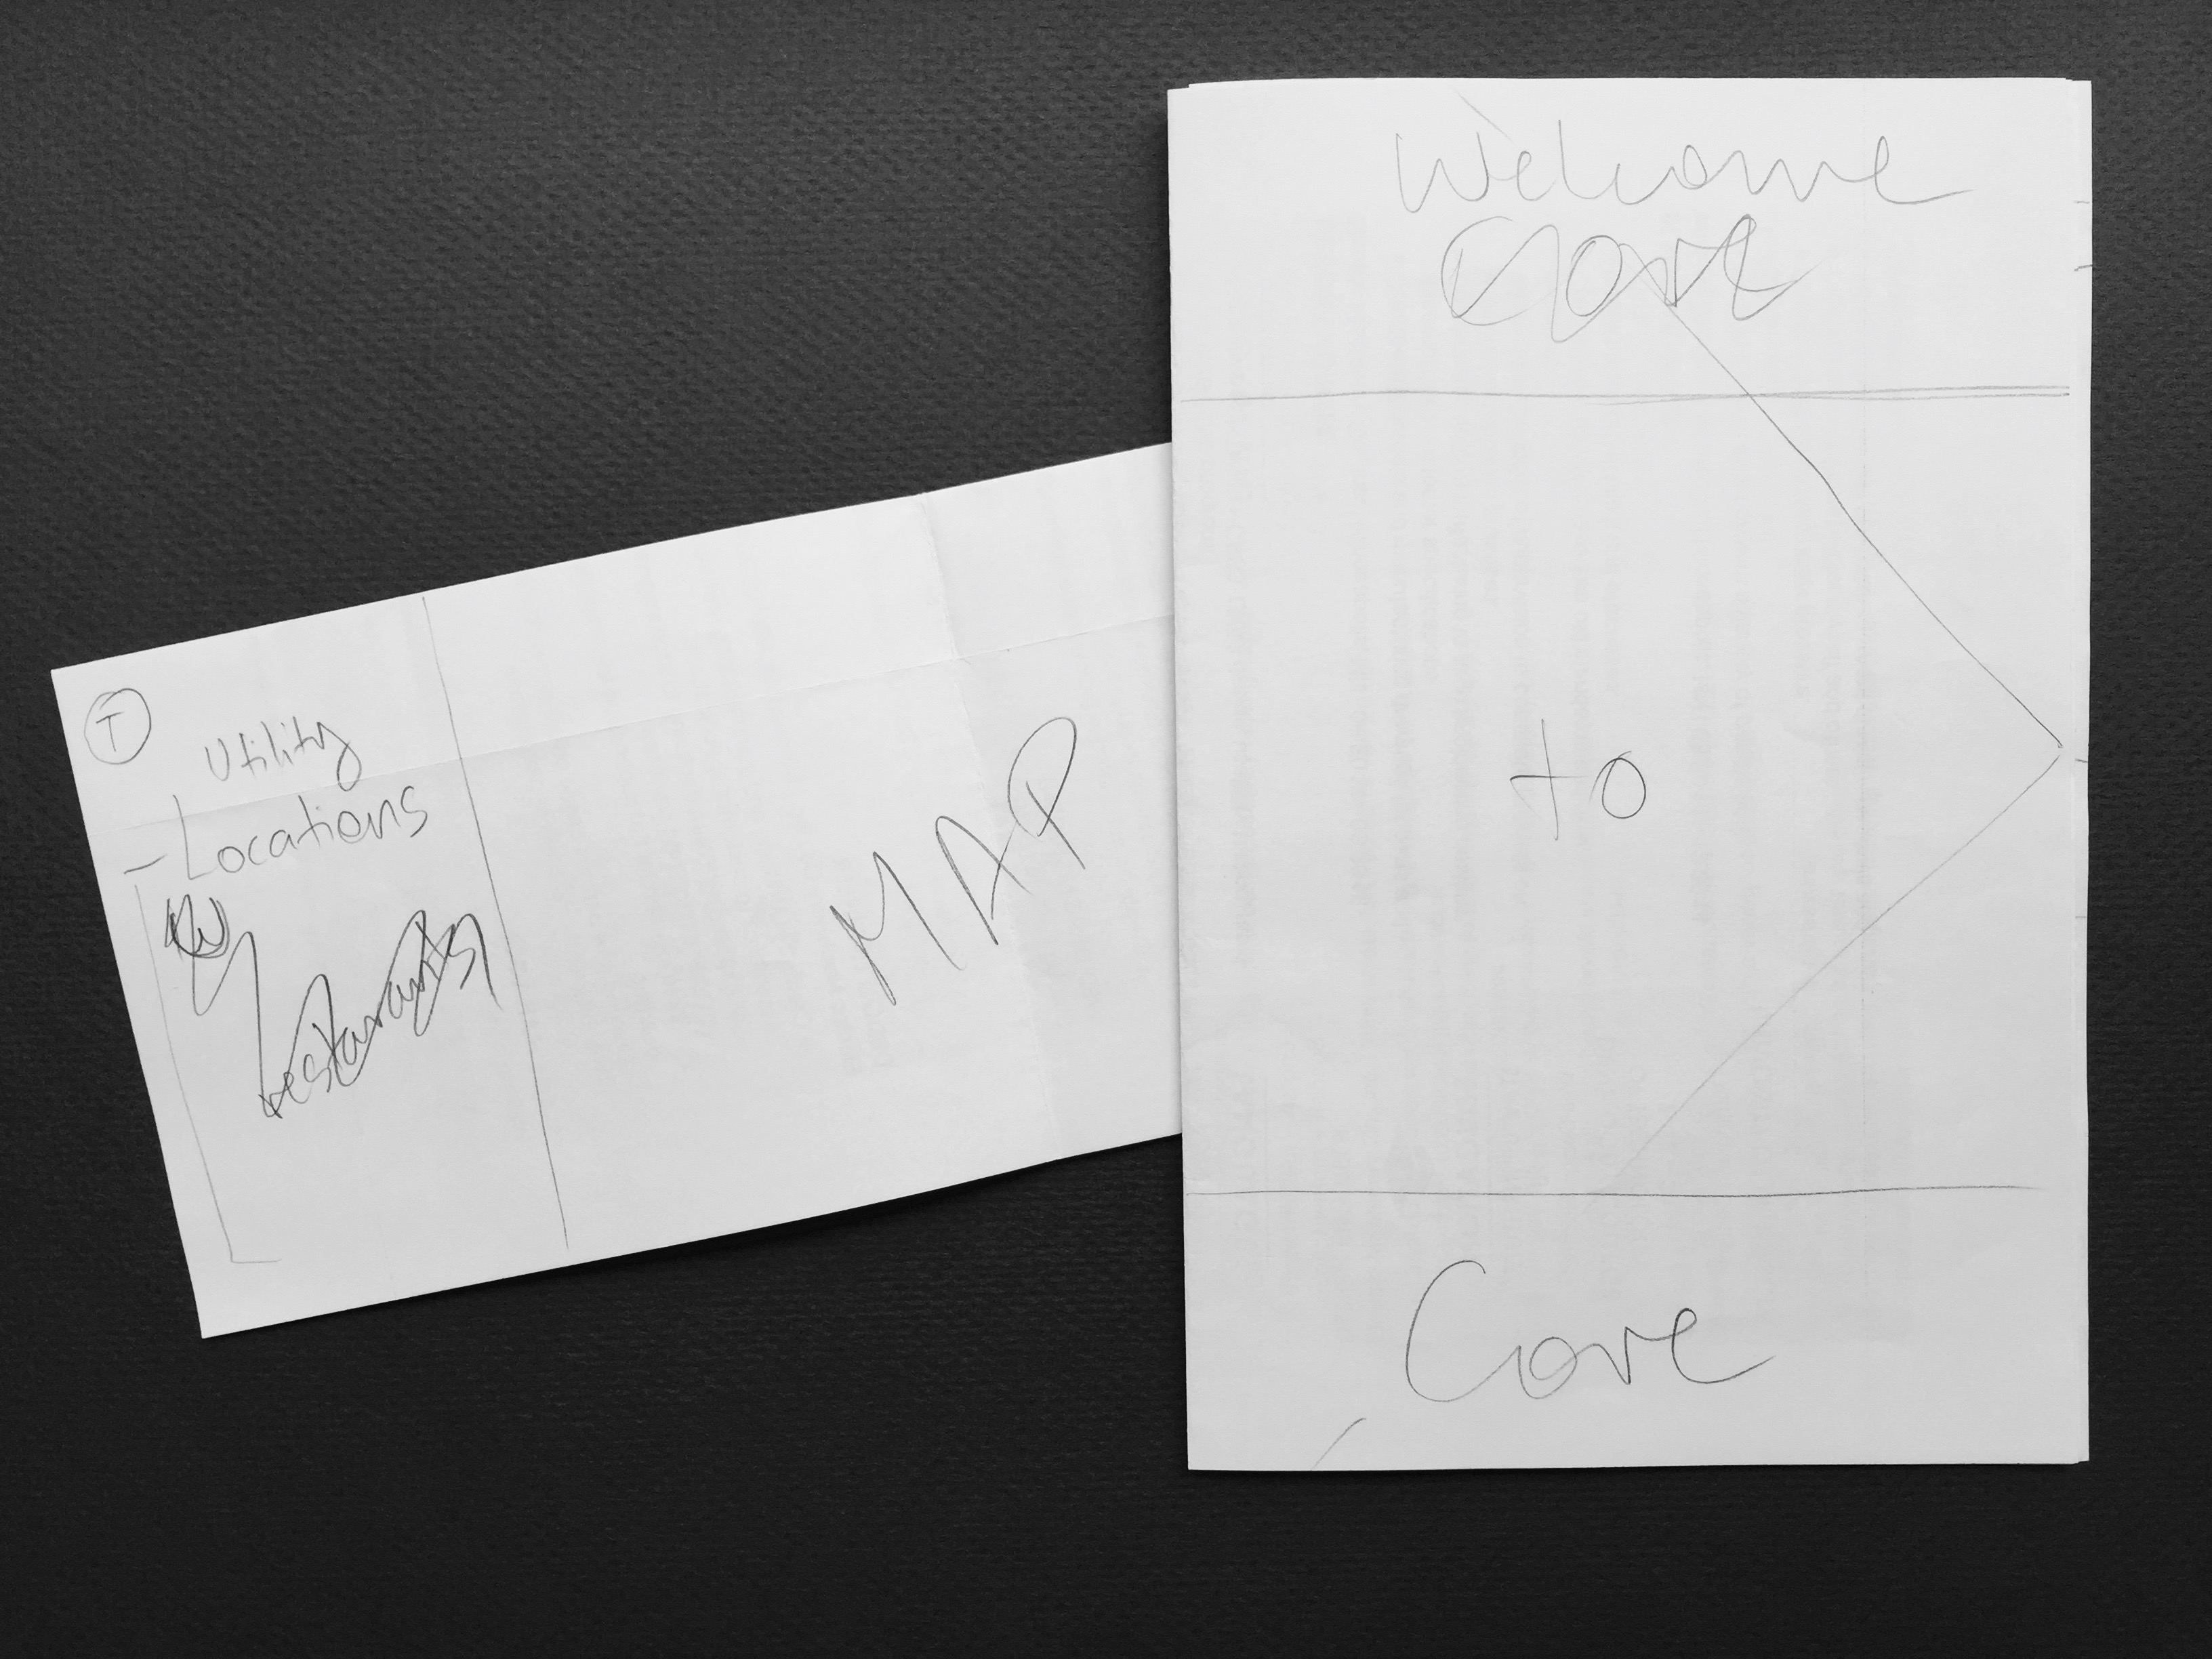 T
Utility
- Locations
restaraunts
MAP
Welcome
Cove
to
Cove